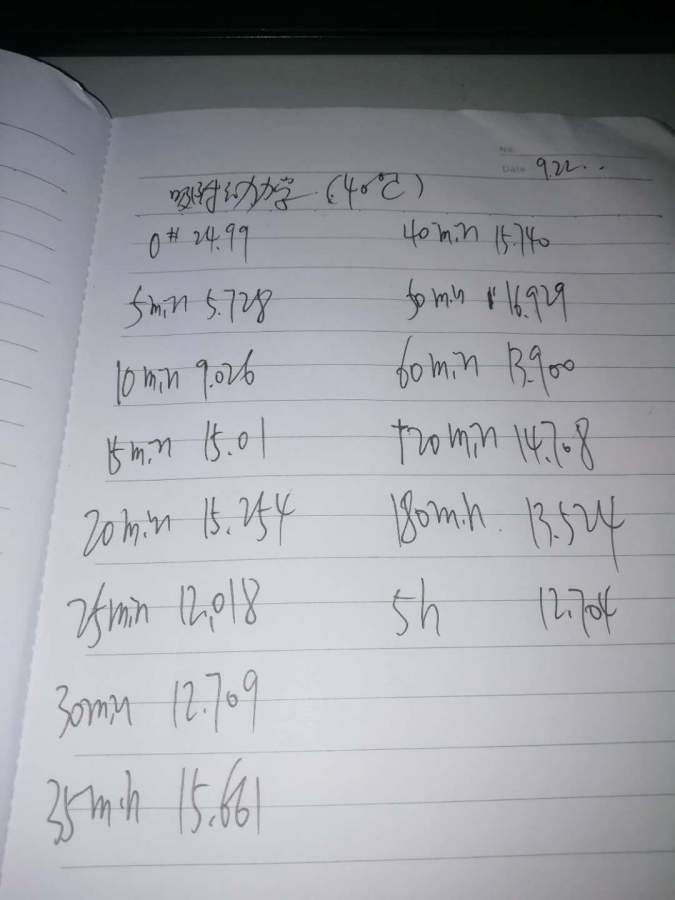 No.
Date 9.22..
吸附动力学 (40℃)
0# 24.99
5min 5.728
10min 9.026
15min 15.01
20min 15.254
25min 12.018
30min 12.709
35min 15.661
40min 15.740
50min 16.929
60min 13.900
120min 14.708
180min. 13.524
5h 12.704